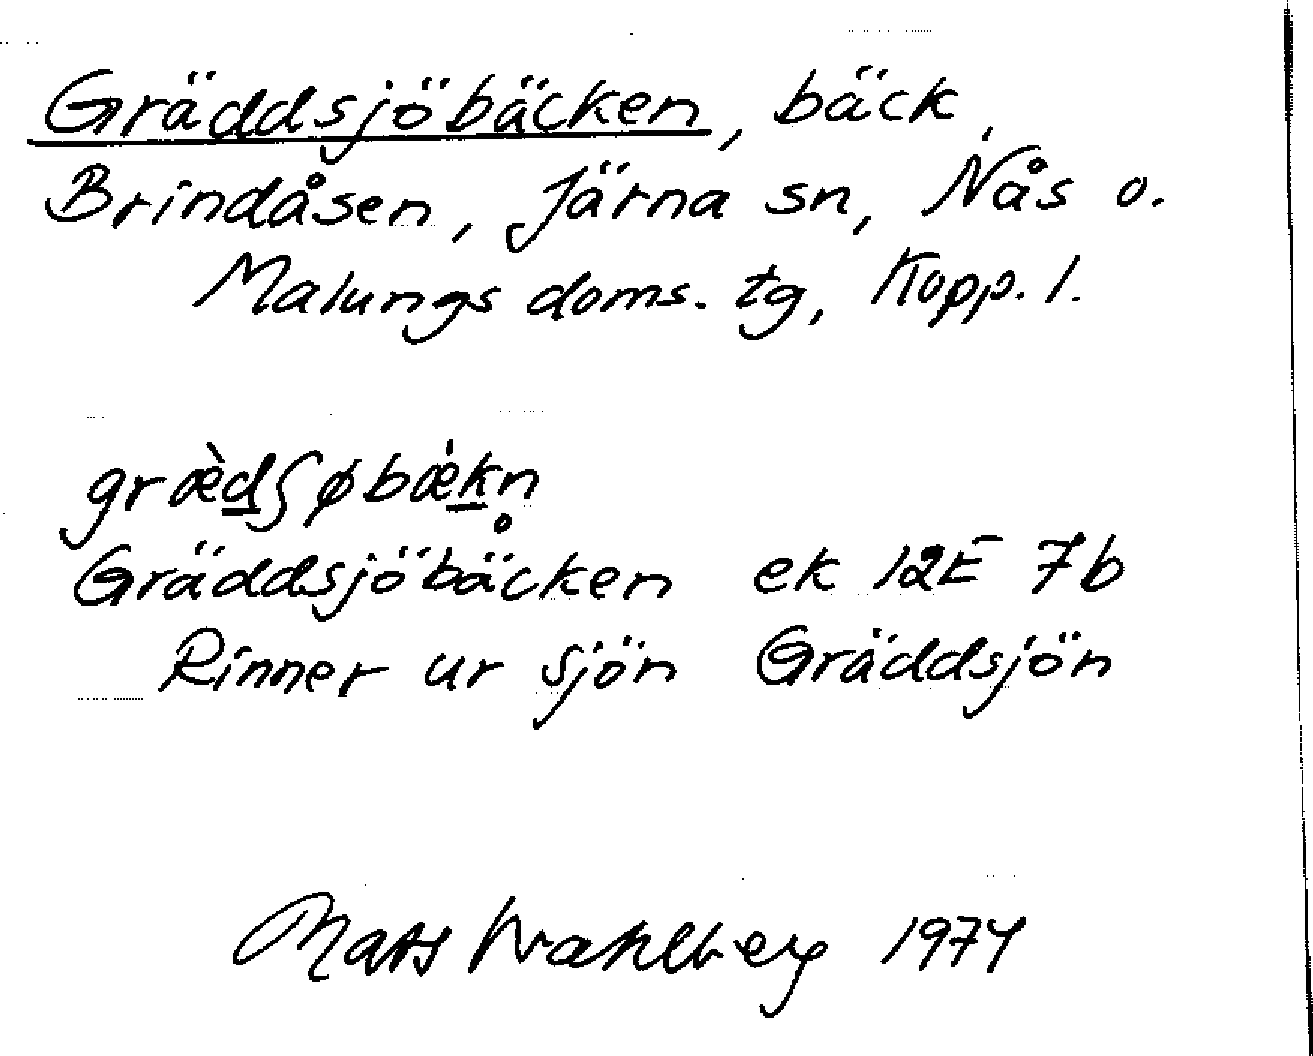 Gräddsjöbäcken, bäck,
Brindåsen, Järna sn, Nås o.
Malungs doms. tg, Kopp. l.
græ̀d̲ʃøbæ̍k̲n̥
Gräddsjöbäcken ek 12E 7b
Rinner ur sjön Gräddsjön
Mats Wahlberg 1974